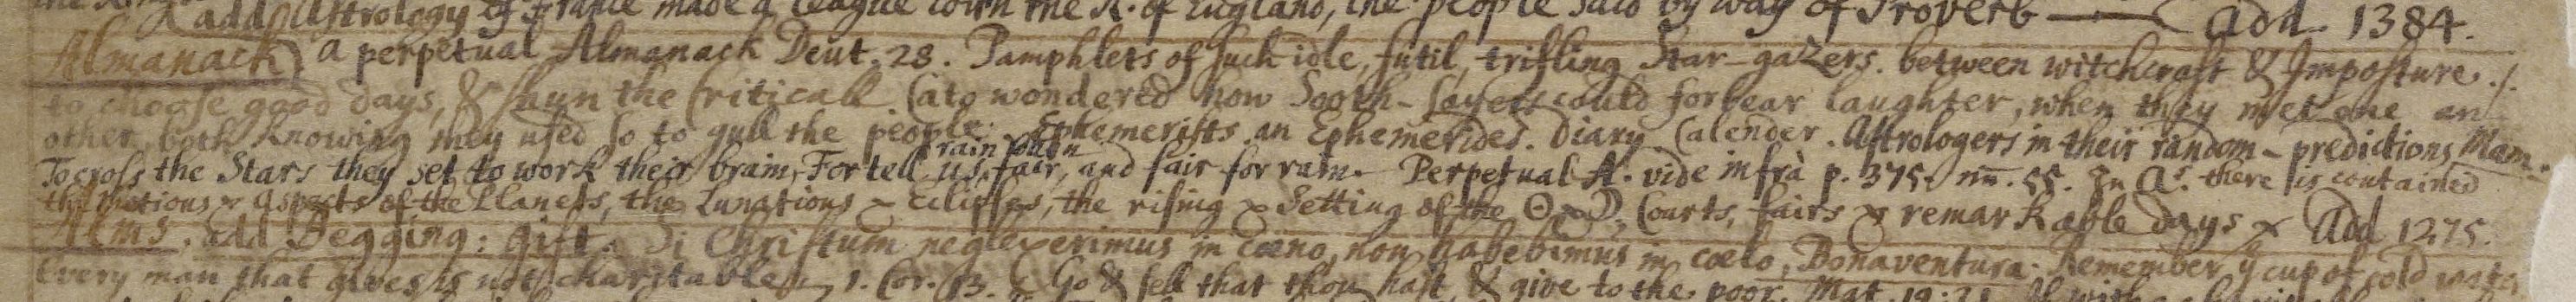 add Astrology if France made a league with the K. of England, the people said by way of Proverb — add. 1384.
Almanack) a perpetual Almanack Deut. 28. Pamphlets of such idle, futil, trifling Star-gazers. between witchcraft & Imposture. /.
to choose good days, & shun the Criticall. Cato wondered how Sooth-sayers could forbear laughter, when they met one an
other, both knowing they used so to gull the people. Ephemerists. an Ephemerides. Diary Calender. Astrologers in their random-predictions Mam.
To cross the Stars they set to work their brain, For tell us, rain when fair, and fair for rain. Perpetual A. vide infrà p. 375. nū. 55. In As. there is contained
the motions & aspects of the Planets, the Lunations & Eclipses, the rising & Setting of the ☉ & ☽, Courts, fairs & remarkable days & Add 1275.
Alms. add Begging: gift. Si Christum neglexerimus in cœno, non habebimus in cœlo, Bonaventura. Remember yͤ cup of cold water
Every man that gives is not charitable, 1. Cor. 13. Go & sell that thou hast & give to the poor. Mat. 19:21.